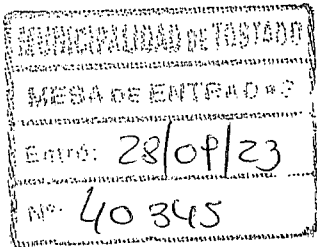 MUNICIPALIDAD DE TOSTADO
MESA DE ENTRADAS
Entró: 28/09/23
Nº 40345